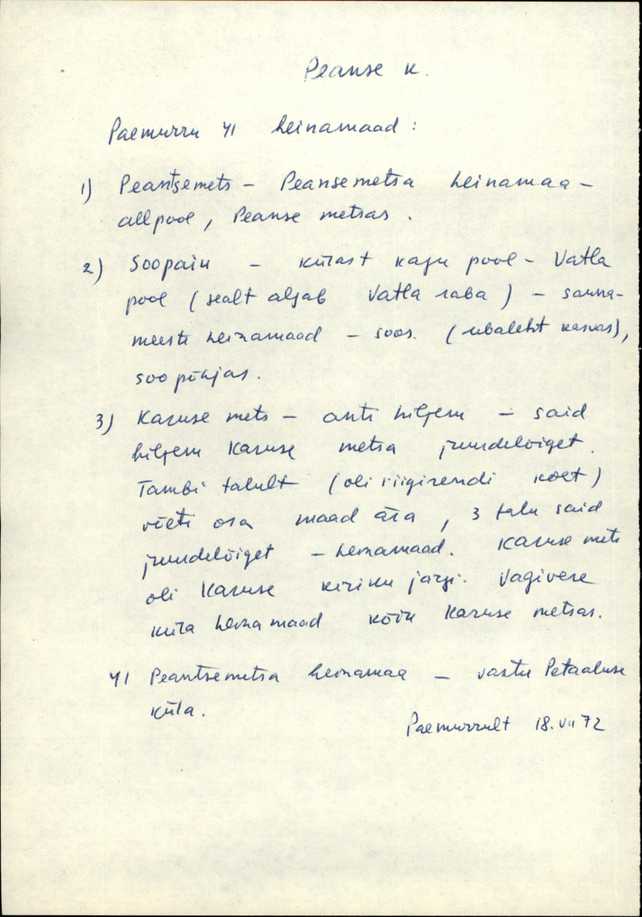 Peanse k.
Paemurru 41 heinamaad:
1) Peantsemets - Peansemetsa heinamaa -
allpool, Peanse metsas.
2) Soopain - külast kagu pool - Vatla
pool (sealt algab Vatla raba) - sauna-
meeste heinamaad - soos. (ubaleht kasvas),
soo põhjas.
3) Karuse mets - anti hiljem - said
hiljem Karuse metsa juurdelõiget.
Tambi talult (oli riigirendi koht)
võeti osa maad ära, 3 talu said
juurdelõiget - heinamaad. Karuse mets
oli Karuse kiriku järgi. Vagivere
küla heinamaad kõik Karuse metsas.
41 Peantsemetsa heinamaa - vastu Petaaluse
küla.
Paemurrult 18.VII 72